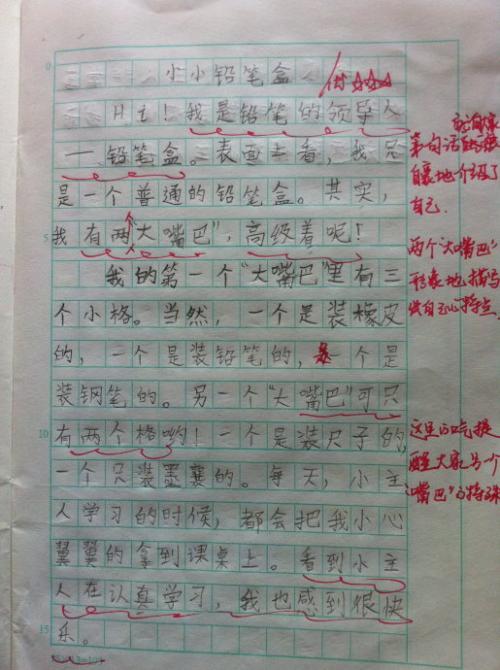 小小铅笔盒
优
Hi！我是铅笔的领导人
——铅笔盒。表面上看，我只
是一个普通的铅笔盒。其实，
我有两"大嘴巴"，高级着呢！
我的第一个"大嘴巴"里有三
个小格。当然，一个是装橡皮
的，一个是装铅笔的，一个是
装钢笔的。另一个"大嘴巴"可只
有两个格哟！一个是装尺子的，
一个只装墨囊的。每天，小主
人学习的时候，都会把我小心
翼翼的拿到课桌上。看到小主
人在认真学习，我也感到很快
乐。
第句话
自豪地介绍了
自己.
两个"大嘴巴"
形象地描写
自己特点
这里的
醒大家另一个
"嘴巴"的特殊
0
5
10
15